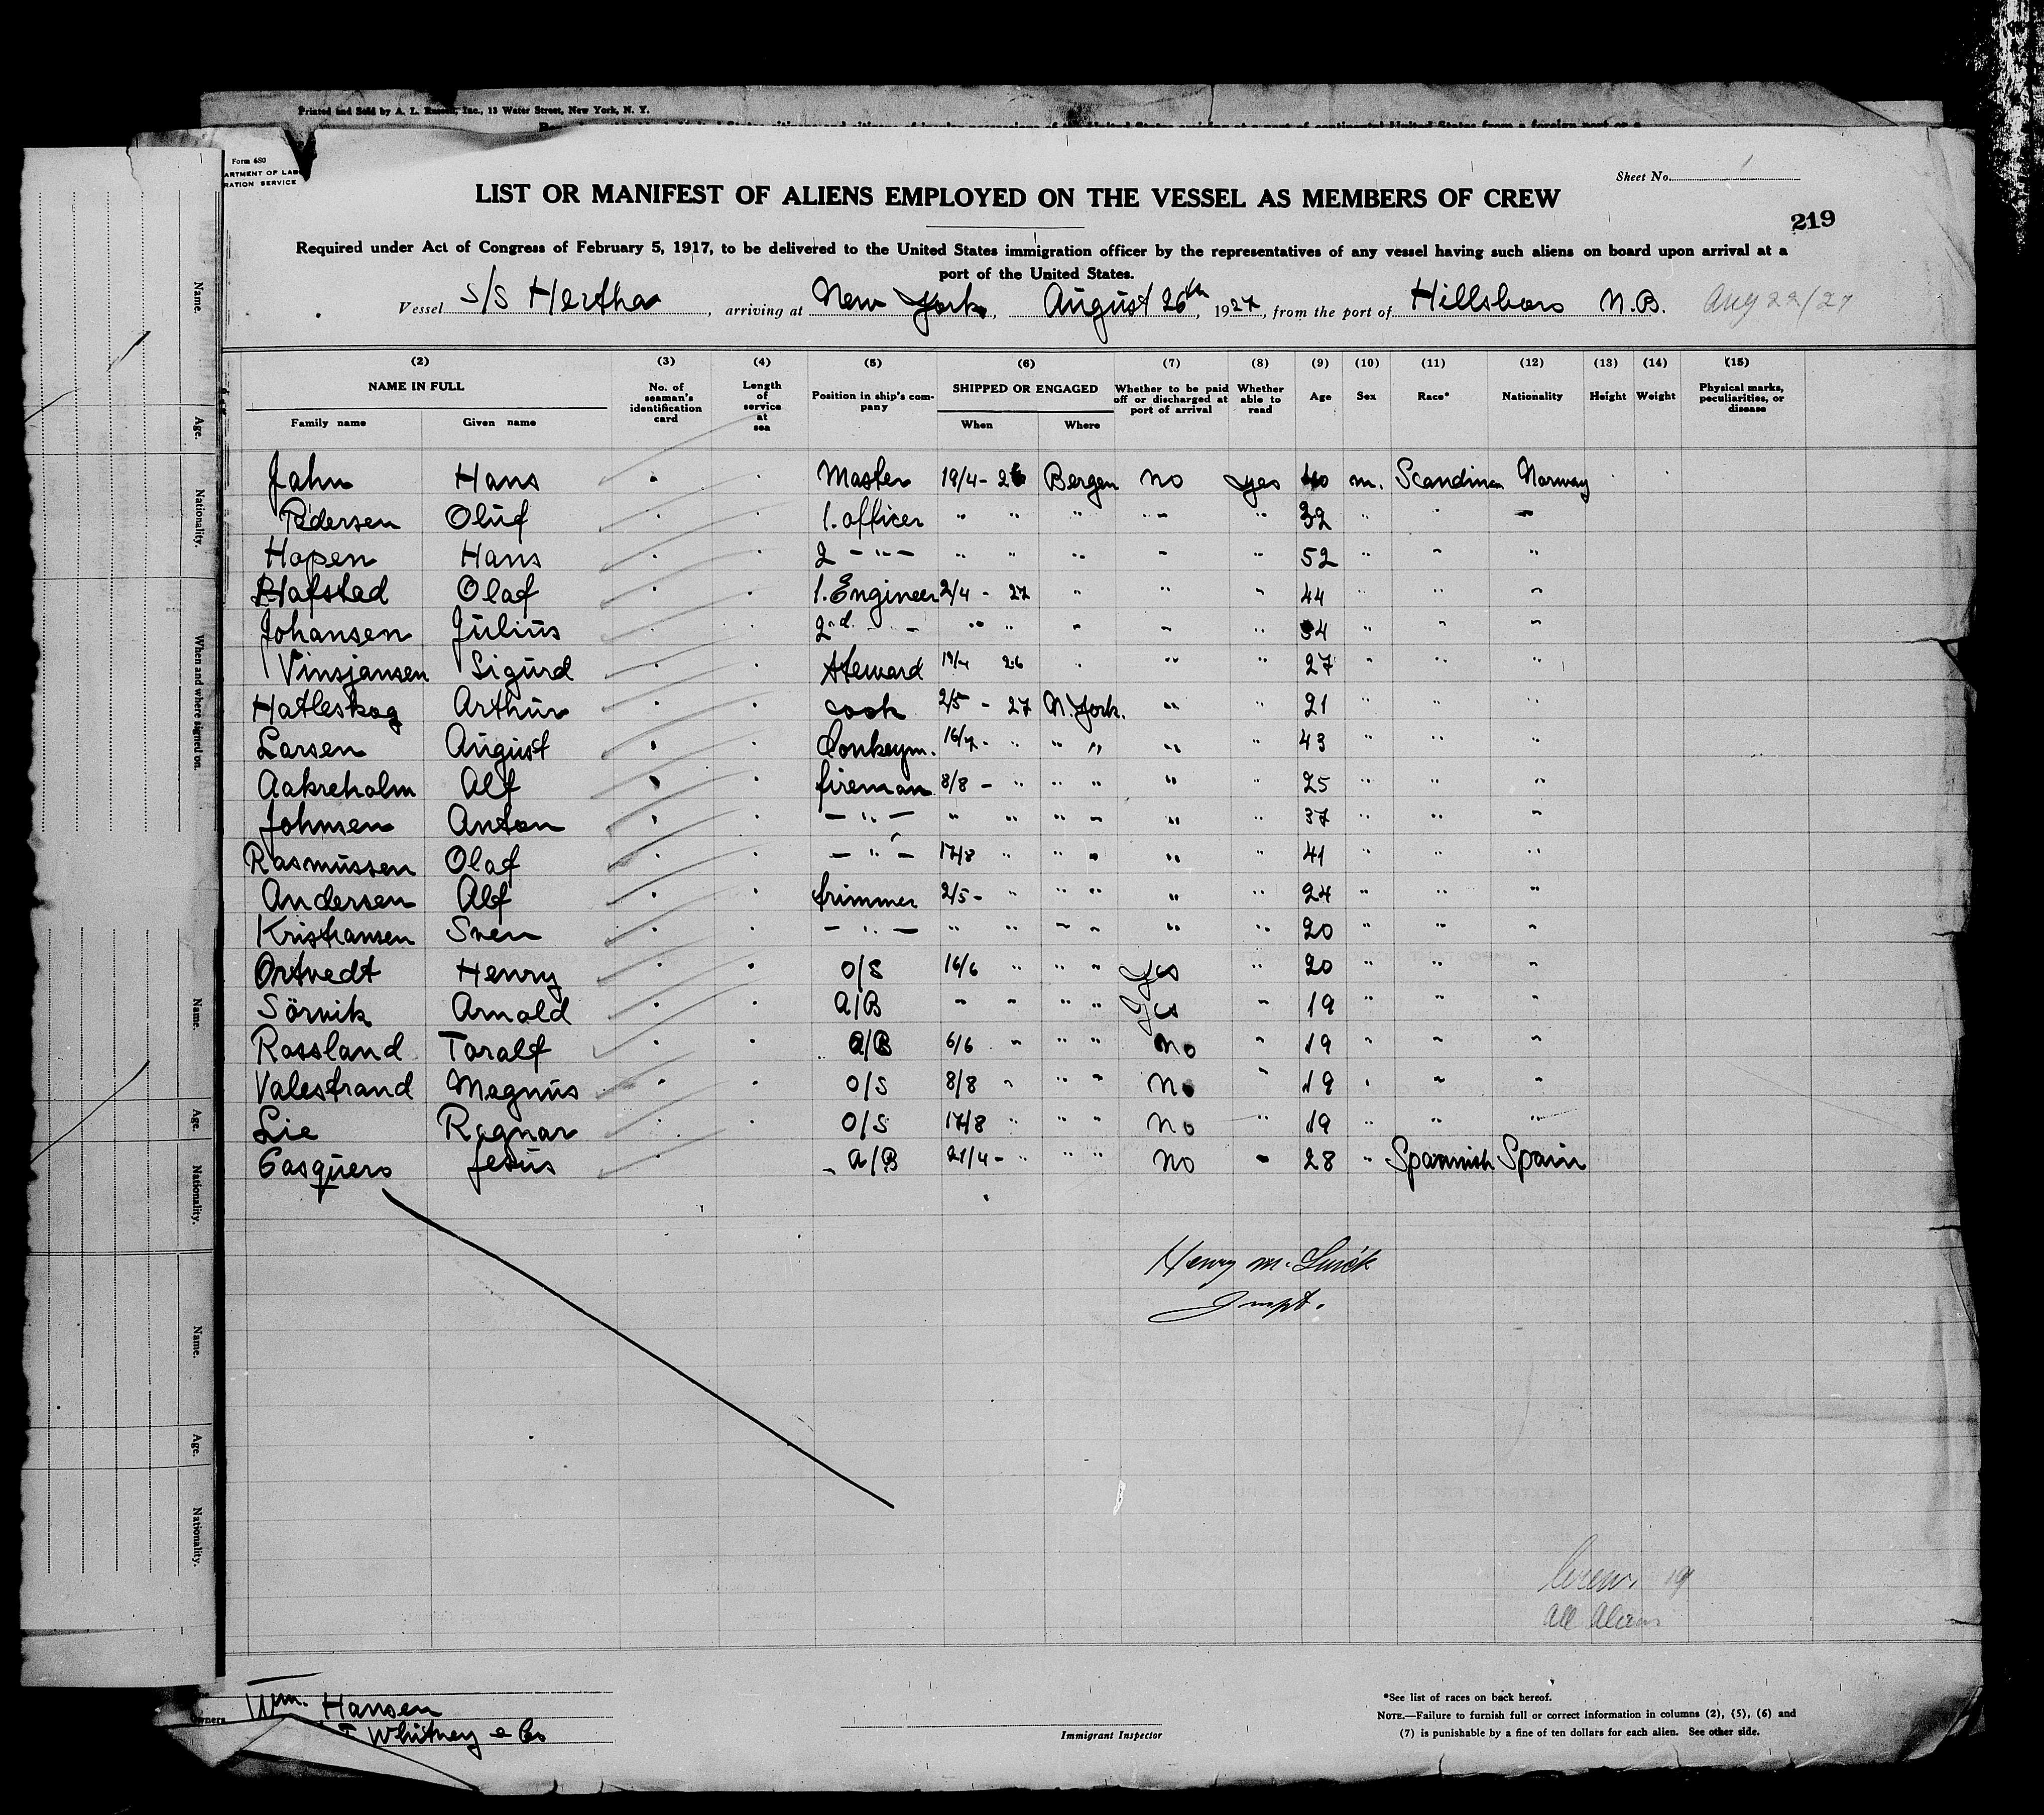 Printed and Sold by A. L. Russell, Inc., 13 Water Street, New York, N. Y.
Form 680
ARTMENT OF LAB
RATION SERVICE
Sheet No. 1
LIST OR MANIFEST OF ALIENS EMPLOYED ON THE VESSEL AS MEMBERS OF CREW
219
Required under Act of Congress of February 5, 1917, to be delivered to the United States immigration officer by the representatives of any vessel having such aliens on board upon arrival at a
port of the United States.
Vessel S/S Hertha, arriving at New York, August 26th, 1927, from the port of Hillsboro N.B. Aug 22/27
(2) (3) (4) (5) (6) (7) (8) (9) (10) (11) (12) (13) (14) (15)
NAME IN FULL No. of seaman's identification card Length of service at sea Position in ship's company SHIPPED OR ENGAGED Whether to be paid off or discharged at port of arrival Whether able to read Age Sex Race* Nationality Height Weight Physical marks, peculiarities, or disease
Family name Given name When Where
Jahn Hans Master 19/4 - 26 Bergen no yes 40 m. Scandina Norway
Pedersen Oluf 1. officer " " " " " 32 " " "
Hopen Hans 2 - " - " " " " " 52 " " "
Hafstad Olaf 1. Engineer 2/4 - 27 " " " 44 " " "
Johansen Julius 2nd. - - " " " " " 34 " " "
Vinsjansen Sigurd Steward 19/4 26 " " " 27 " " "
Hatleskog Arthur cook 2/5 - 27 N. York. " " 21 " " "
Larsen August Donkeym. 16/7 - " " " " " 43 " " "
Aakreholm Alf fireman 8/8 - " " " " " 25 " " "
Johnsen Anton - " - " " " " " " 37 " " "
Rasmussen Olaf - " - 17/8 " " " " " 41 " " "
Andersen Alf trimmer 2/5 - " " " " " 24 " " "
Kristiansen Sven - " - " " " " " " 20 " " "
Ortvedt Henry O/S 16/6 " " " yes 20 " " "
Sörvik Arnold A/B " " " " yes " 19 " " "
Rossland Toralf A/B 6/6 " " " no " 19 " " "
Valestrand Magnus O/S 8/8 " " " no " 19 " " "
Lie Ragnar O/S 17/8 " " " no " 19 " " "
Gasquero Jesus A/B 21/4 - " " " no " 28 " Spannish Spain
Henry M.
Inspt.
Crew. 19
All Aliens
Wm. Hansen
Owners
T Whitney & Co
Immigrant Inspector
*See list of races on back hereof.
NOTE.—Failure to furnish full or correct information in columns (2), (5), (6) and
(7) is punishable by a fine of ten dollars for each alien. See other side.
Name.
Age.
Nationality.
When and where signed on.
Name.
Age.
Nationality.
Name.
Age.
Nationality.